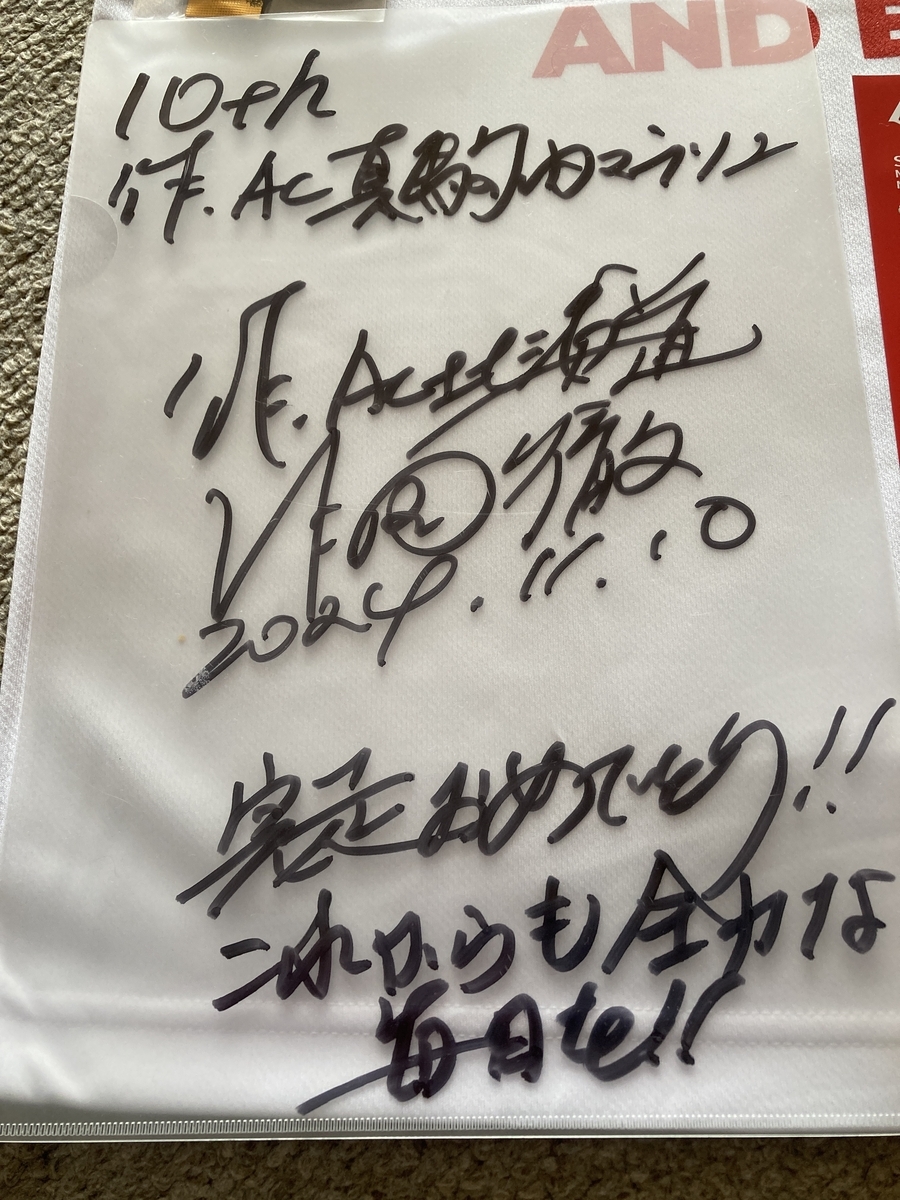 AND
10th
作.AC真駒内マラソン
作.AC北海道
徹
2024.11.10
完走おめでとう!!
これからも全力な
毎日を!!